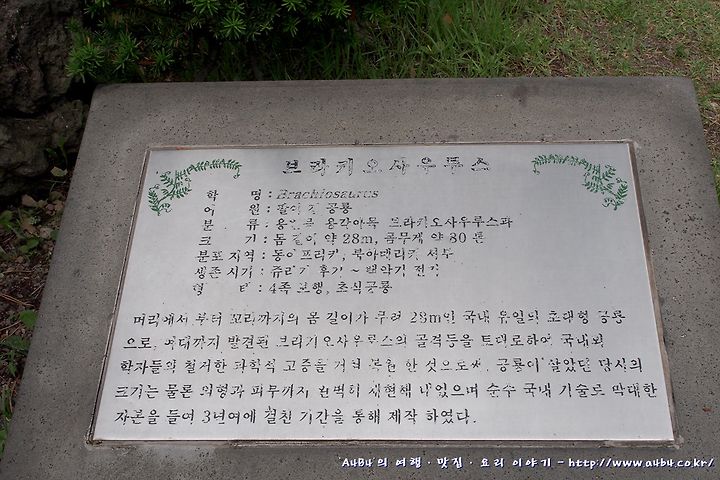 브라키오사우루스
학 명 : Brachiosaurus
어 원 : 팔이 긴 공룡
분 류 : 용반목 용각아목 브라키오사우루스과
크 기 : 몸 길이 약 28m, 몸무게 약 80 톤
분포 지역 : 동아프리카, 북아메리카 서부
생존 시기 : 쥬라기 후기 ~ 백악기 전기
형 태 : 4족 보행, 초식공룡
머리에서 부터 꼬리까지의 몸 길이가 무려 28m인 국내 유일의 초대형 공룡
으로, 여태까지 발견된 브라키오사우루스의 골격등을 토대로하여 국내외
학자들의 철저한 과학적 고증을 거쳐 복원 한 것으로써, 공룡이 살았던 당시의
크기는 물론 외형과 피부까지 완벽히 재현해 내었으며 순수 국내 기술로 막대한
자본을 들여 3년여에 걸친 기간을 통해 제작 하였다.
AuBu의 여행 · 맛집 · 요리 이야기 - http://www.aubu.co.kr/